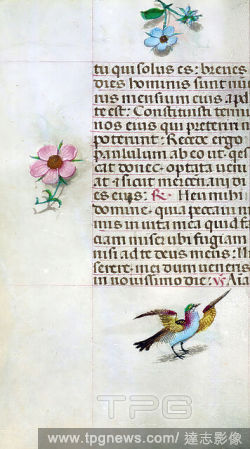 tu qui solus es: breues
dies hominis sunt nu
rus mensium eius ap
te est: Constituisti termi
nos eius qui preteriri n
poterunt: Recede ergo
paululum ab eo ut qu
cat donec optita ueni
at sicut mercenarij di
es eius: R. Heu mihi
domine, quia peccaui n
mis in uita mea quid f
ciam miser: ubi fugiam
nisi ad te deus meus: Mi
serere mei dum ueneris
in nouissimo die: V. Ai
TPG
www.tpgnews.com / 達志影像